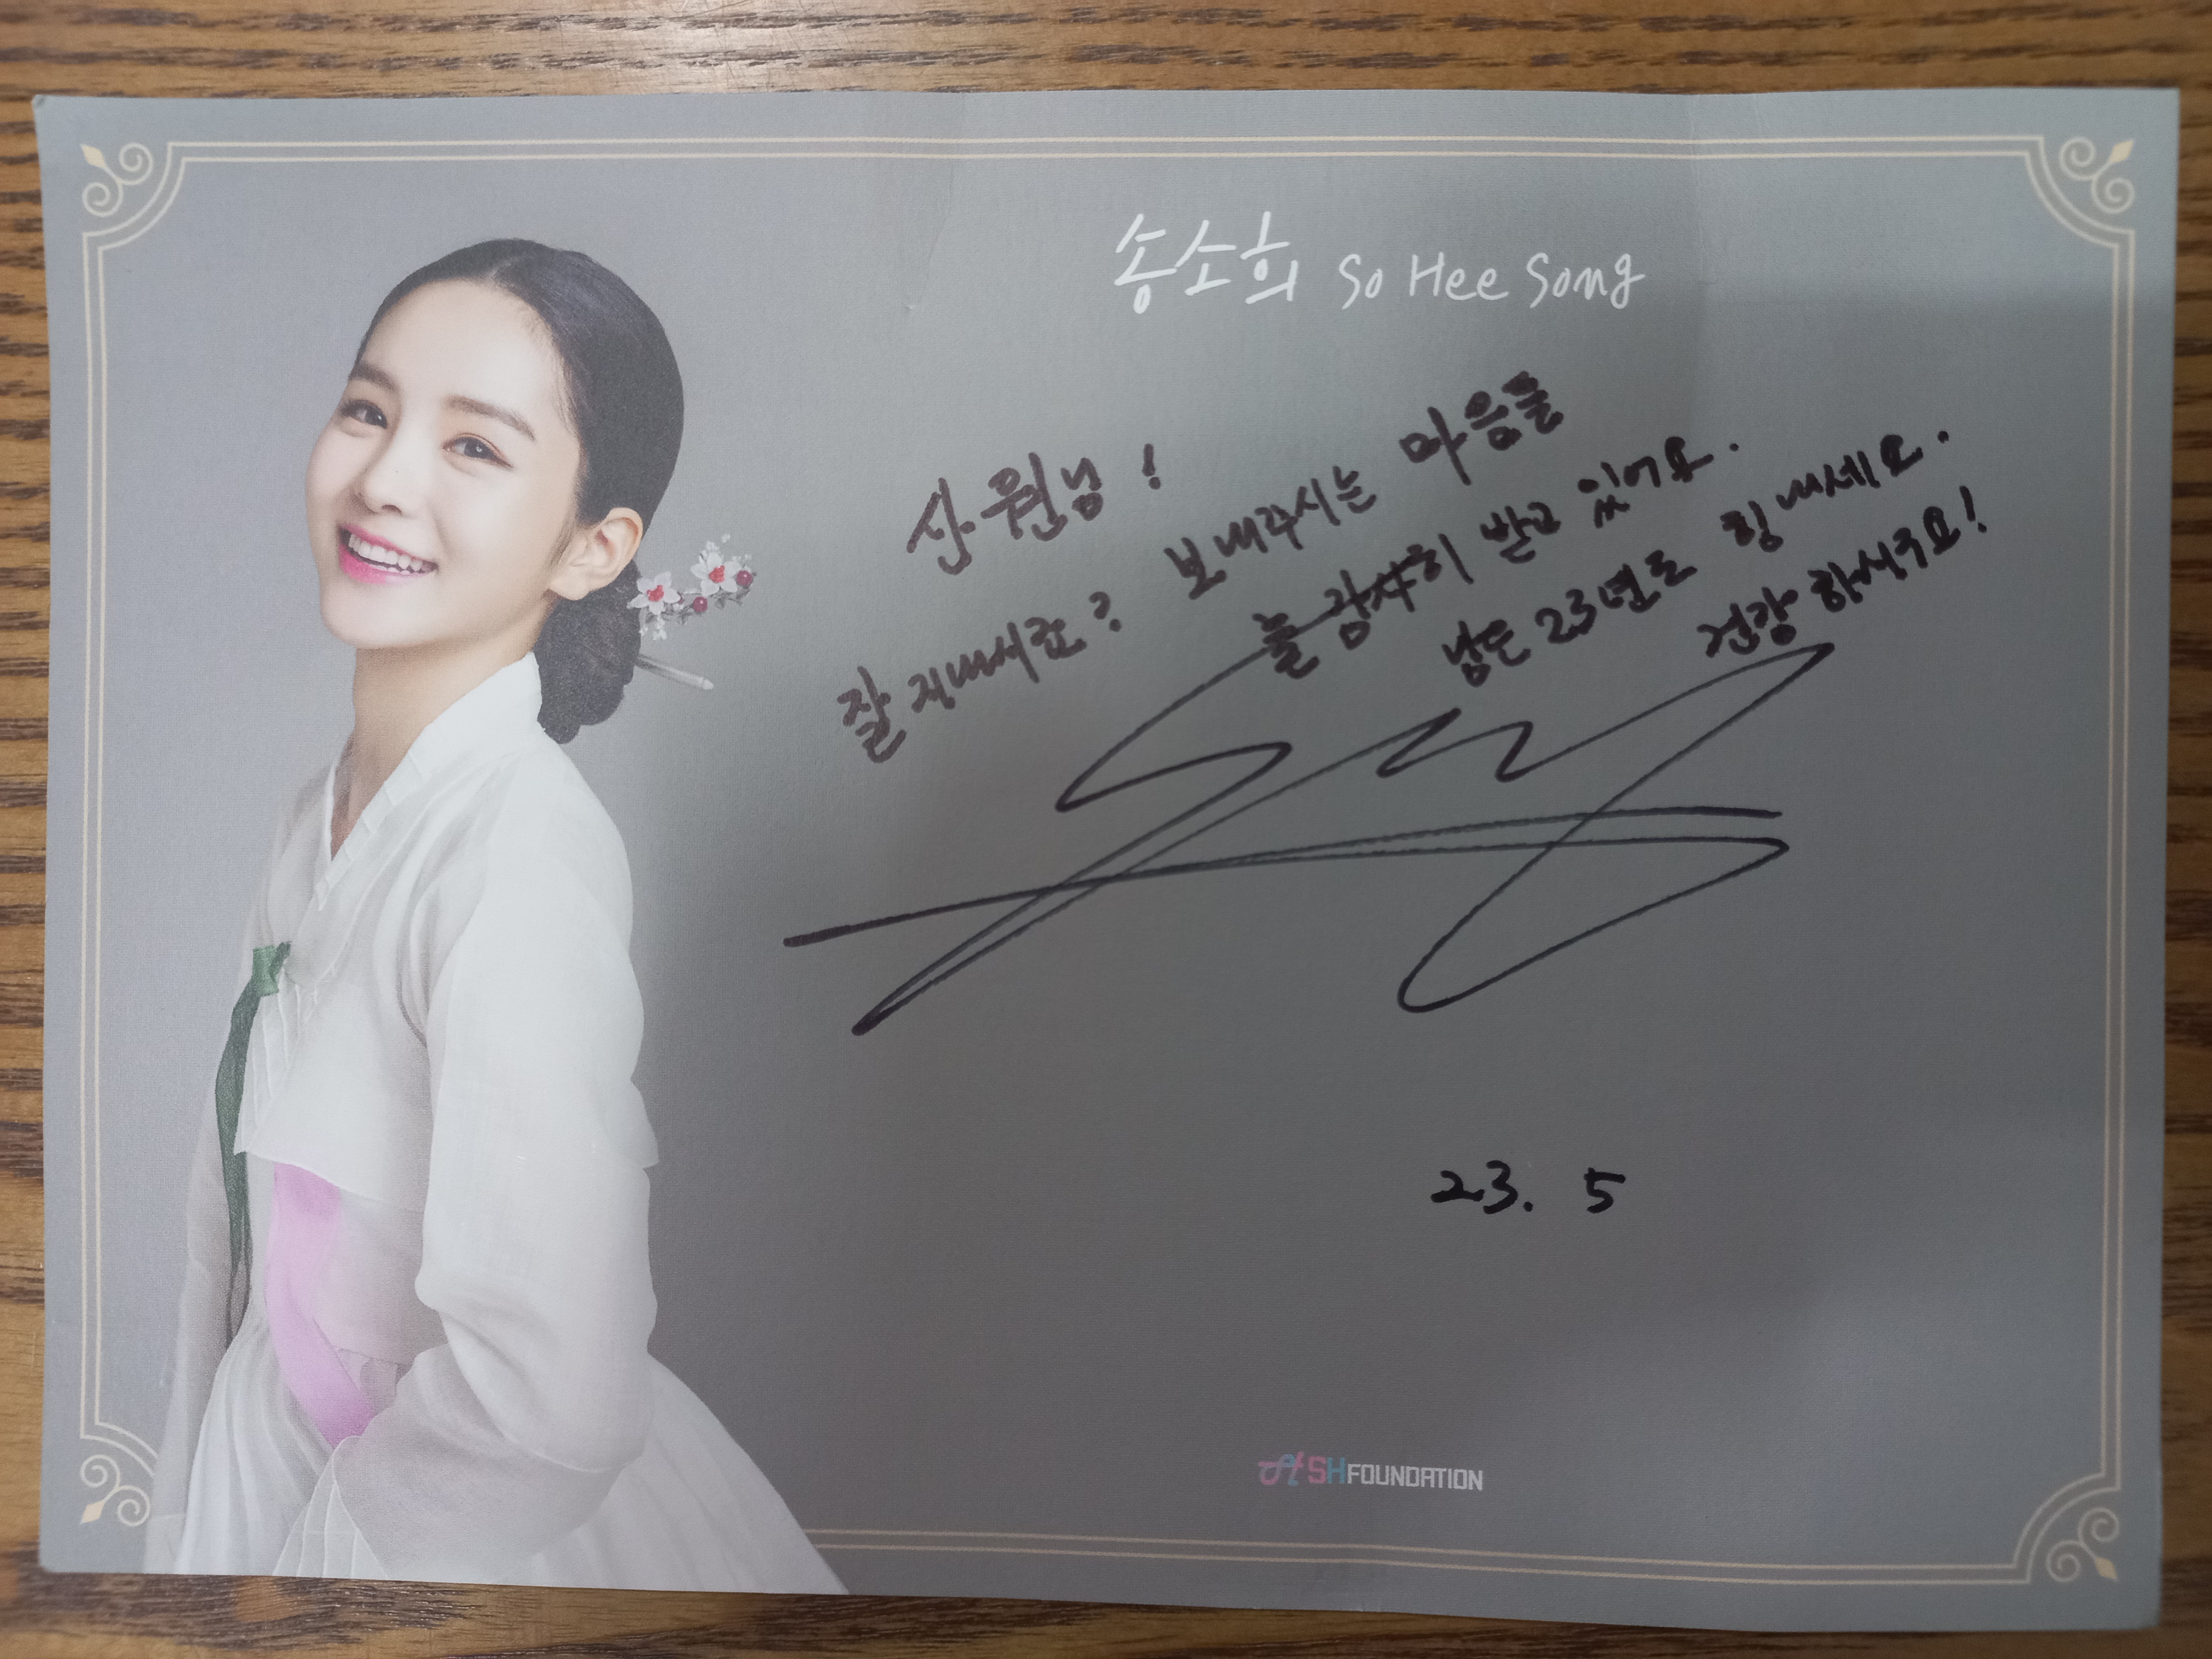 송소희 So Hee Song
산원님!
잘 지내세요? 보내주시는 마음들
늘 감사히 받고 있어요.
남은 23년도 힘내세요.
건강하셔요!
23. 5
SHFOUNDATION